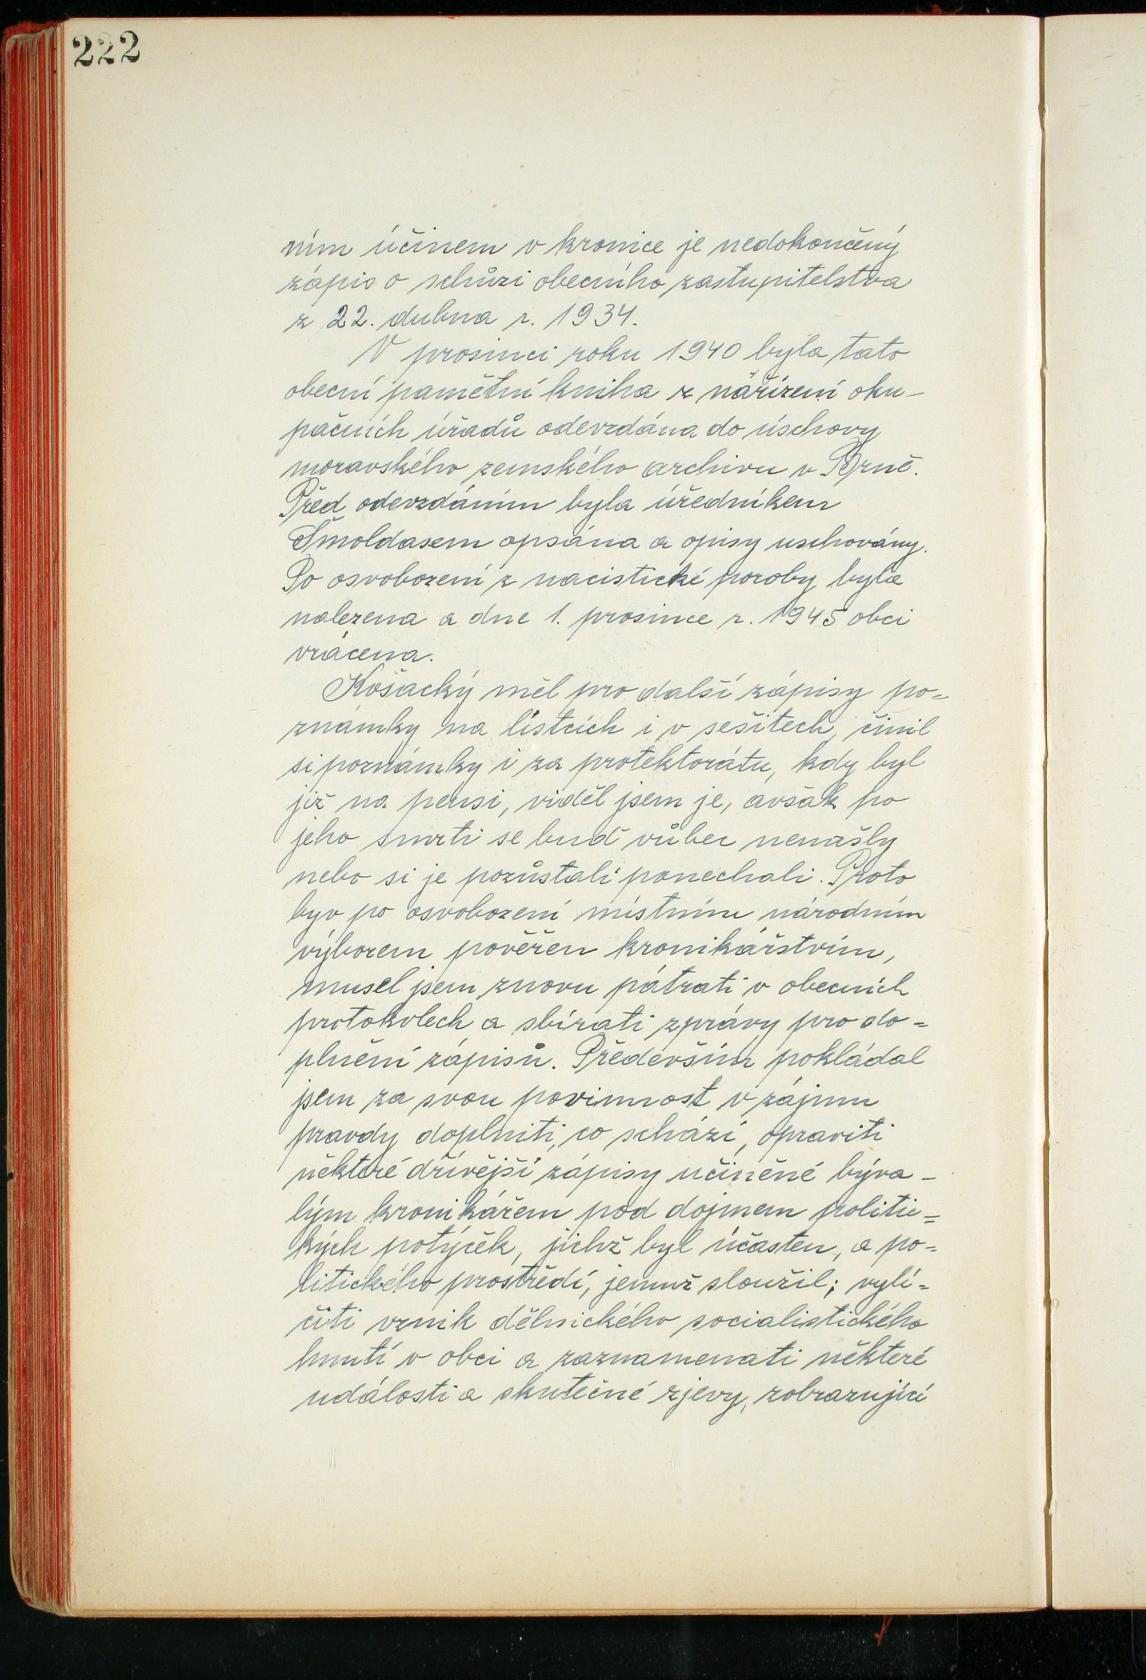 222
ním účinem v kronice je nedokončený
zápis o schůzi obecního zastupitelstva
z 22. dubna r. 1934.
V prosinci roku 1940 byla tato
obecní pamětní kniha z nářízení oku-
pačních úřadů odevzdána do úschovy
moravského zemského archivu v Brně.
Před odevzdáním byla úředníkem
Šmoldasem opsána a opisy uschovány.
Po osvobození z nacistické poroby byla
nalezena a dne 1. prosince r. 1945 obci
vrácena.
Košacký měl pro další zápisy po=
známky na lístcích i v sešitech, činil
si poznámky i za protektorátu, kdy byl
již na pensi, viděl jsem je, avšak po
jeho smrti se buď vůbec nenašly
nebo si je pozůstalí ponechali. Proto
byv po osvobození místním národním
výborem pověřen kronikářstvím,
musel jsem znovu pátrati v obecních
protokolech a sbírati zprávy pro do=
plnění zápisů. Především pokládal
jsem za svou povinnost v zájmu
pravdy doplniti, co schází, opraviti
některé dřívější zápisy učiněné býva-
lým kronikářem pod dojmem politic=
kých potýček, jichž byl účasten, a po=
litického prostředí, jemuž sloužil; vylí=
čiti vznik dělnického socialistického
hnutí v obci a zaznamenati některé
události a skutečné zjevy, zobrazující